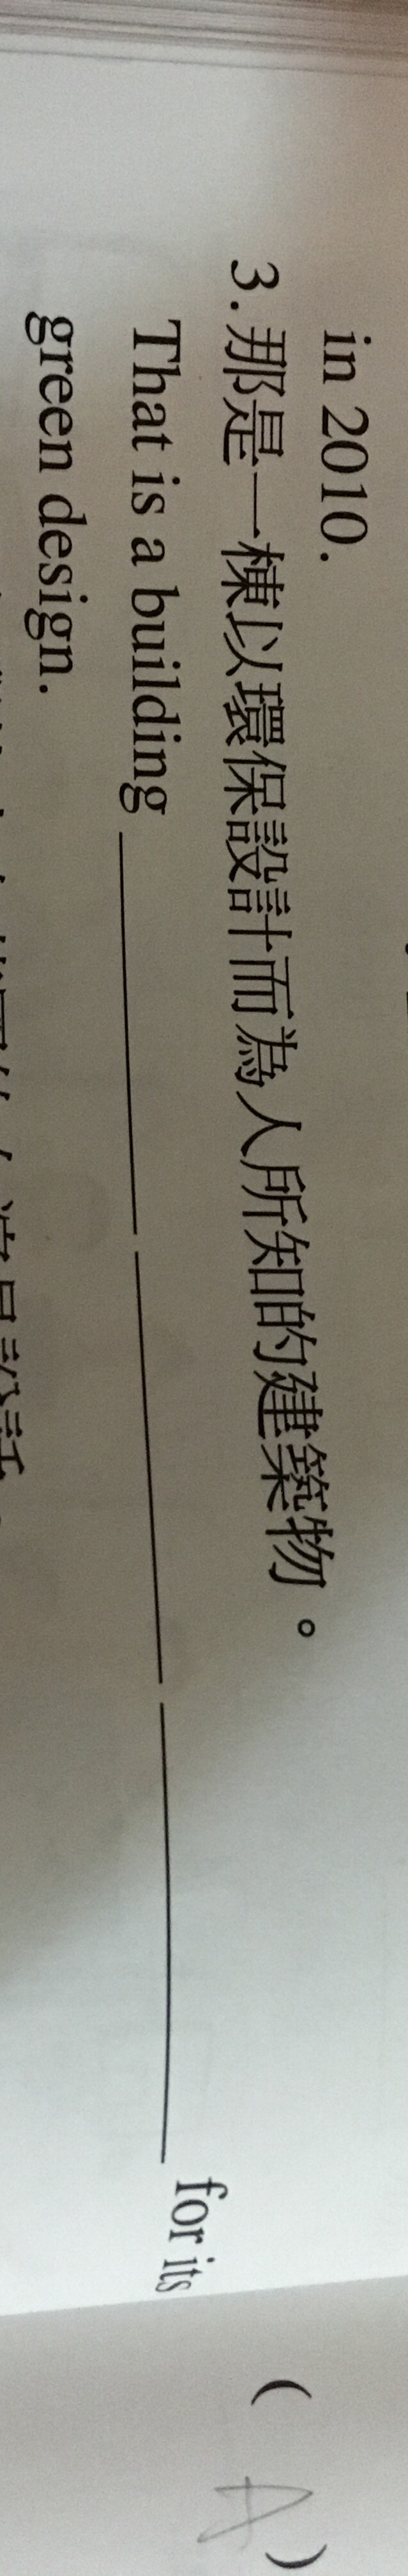 in 2010.
3. 那是一棟以環保設計而為人所知的建築物。
That is a building ______ ______ ______ for its
green design.
( A )